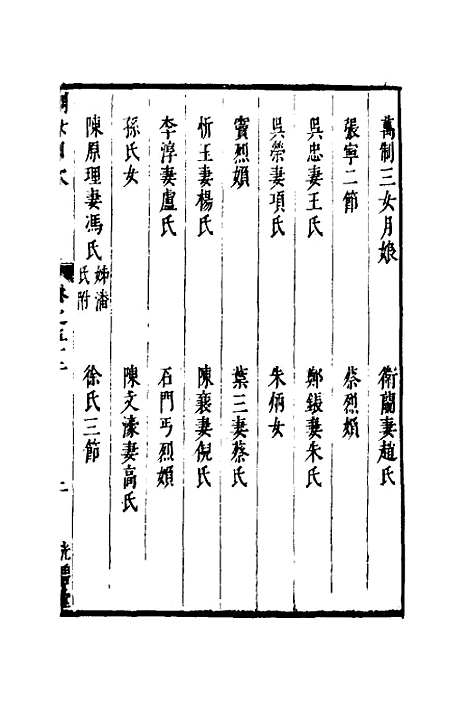 萬制三女月娘　衛蘭妻趙氏
張寧二節　蔡烈婦
吳忠妻王氏　鄭鋹妻朱氏
吳榮妻項氏　朱俩女
竇烈婦　葉三妻蔡氏
忻玉妻楊氏　陳襄妻倪氏
李淳妻盧氏　石門丐烈婦
孫氏女　陳文濠妻高氏
陳原理妻馮氏姊潘氏附　徐氏三節